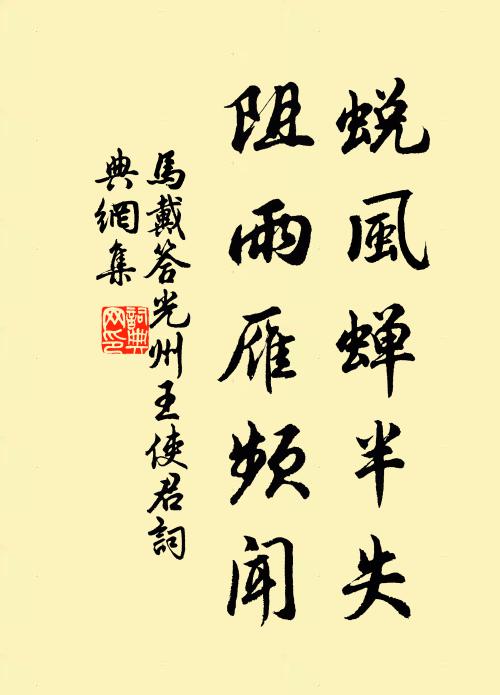 蜕風蝉半失
阻雨雁频闻
馬戴答光州王使君詞
典網集
詞典
网印